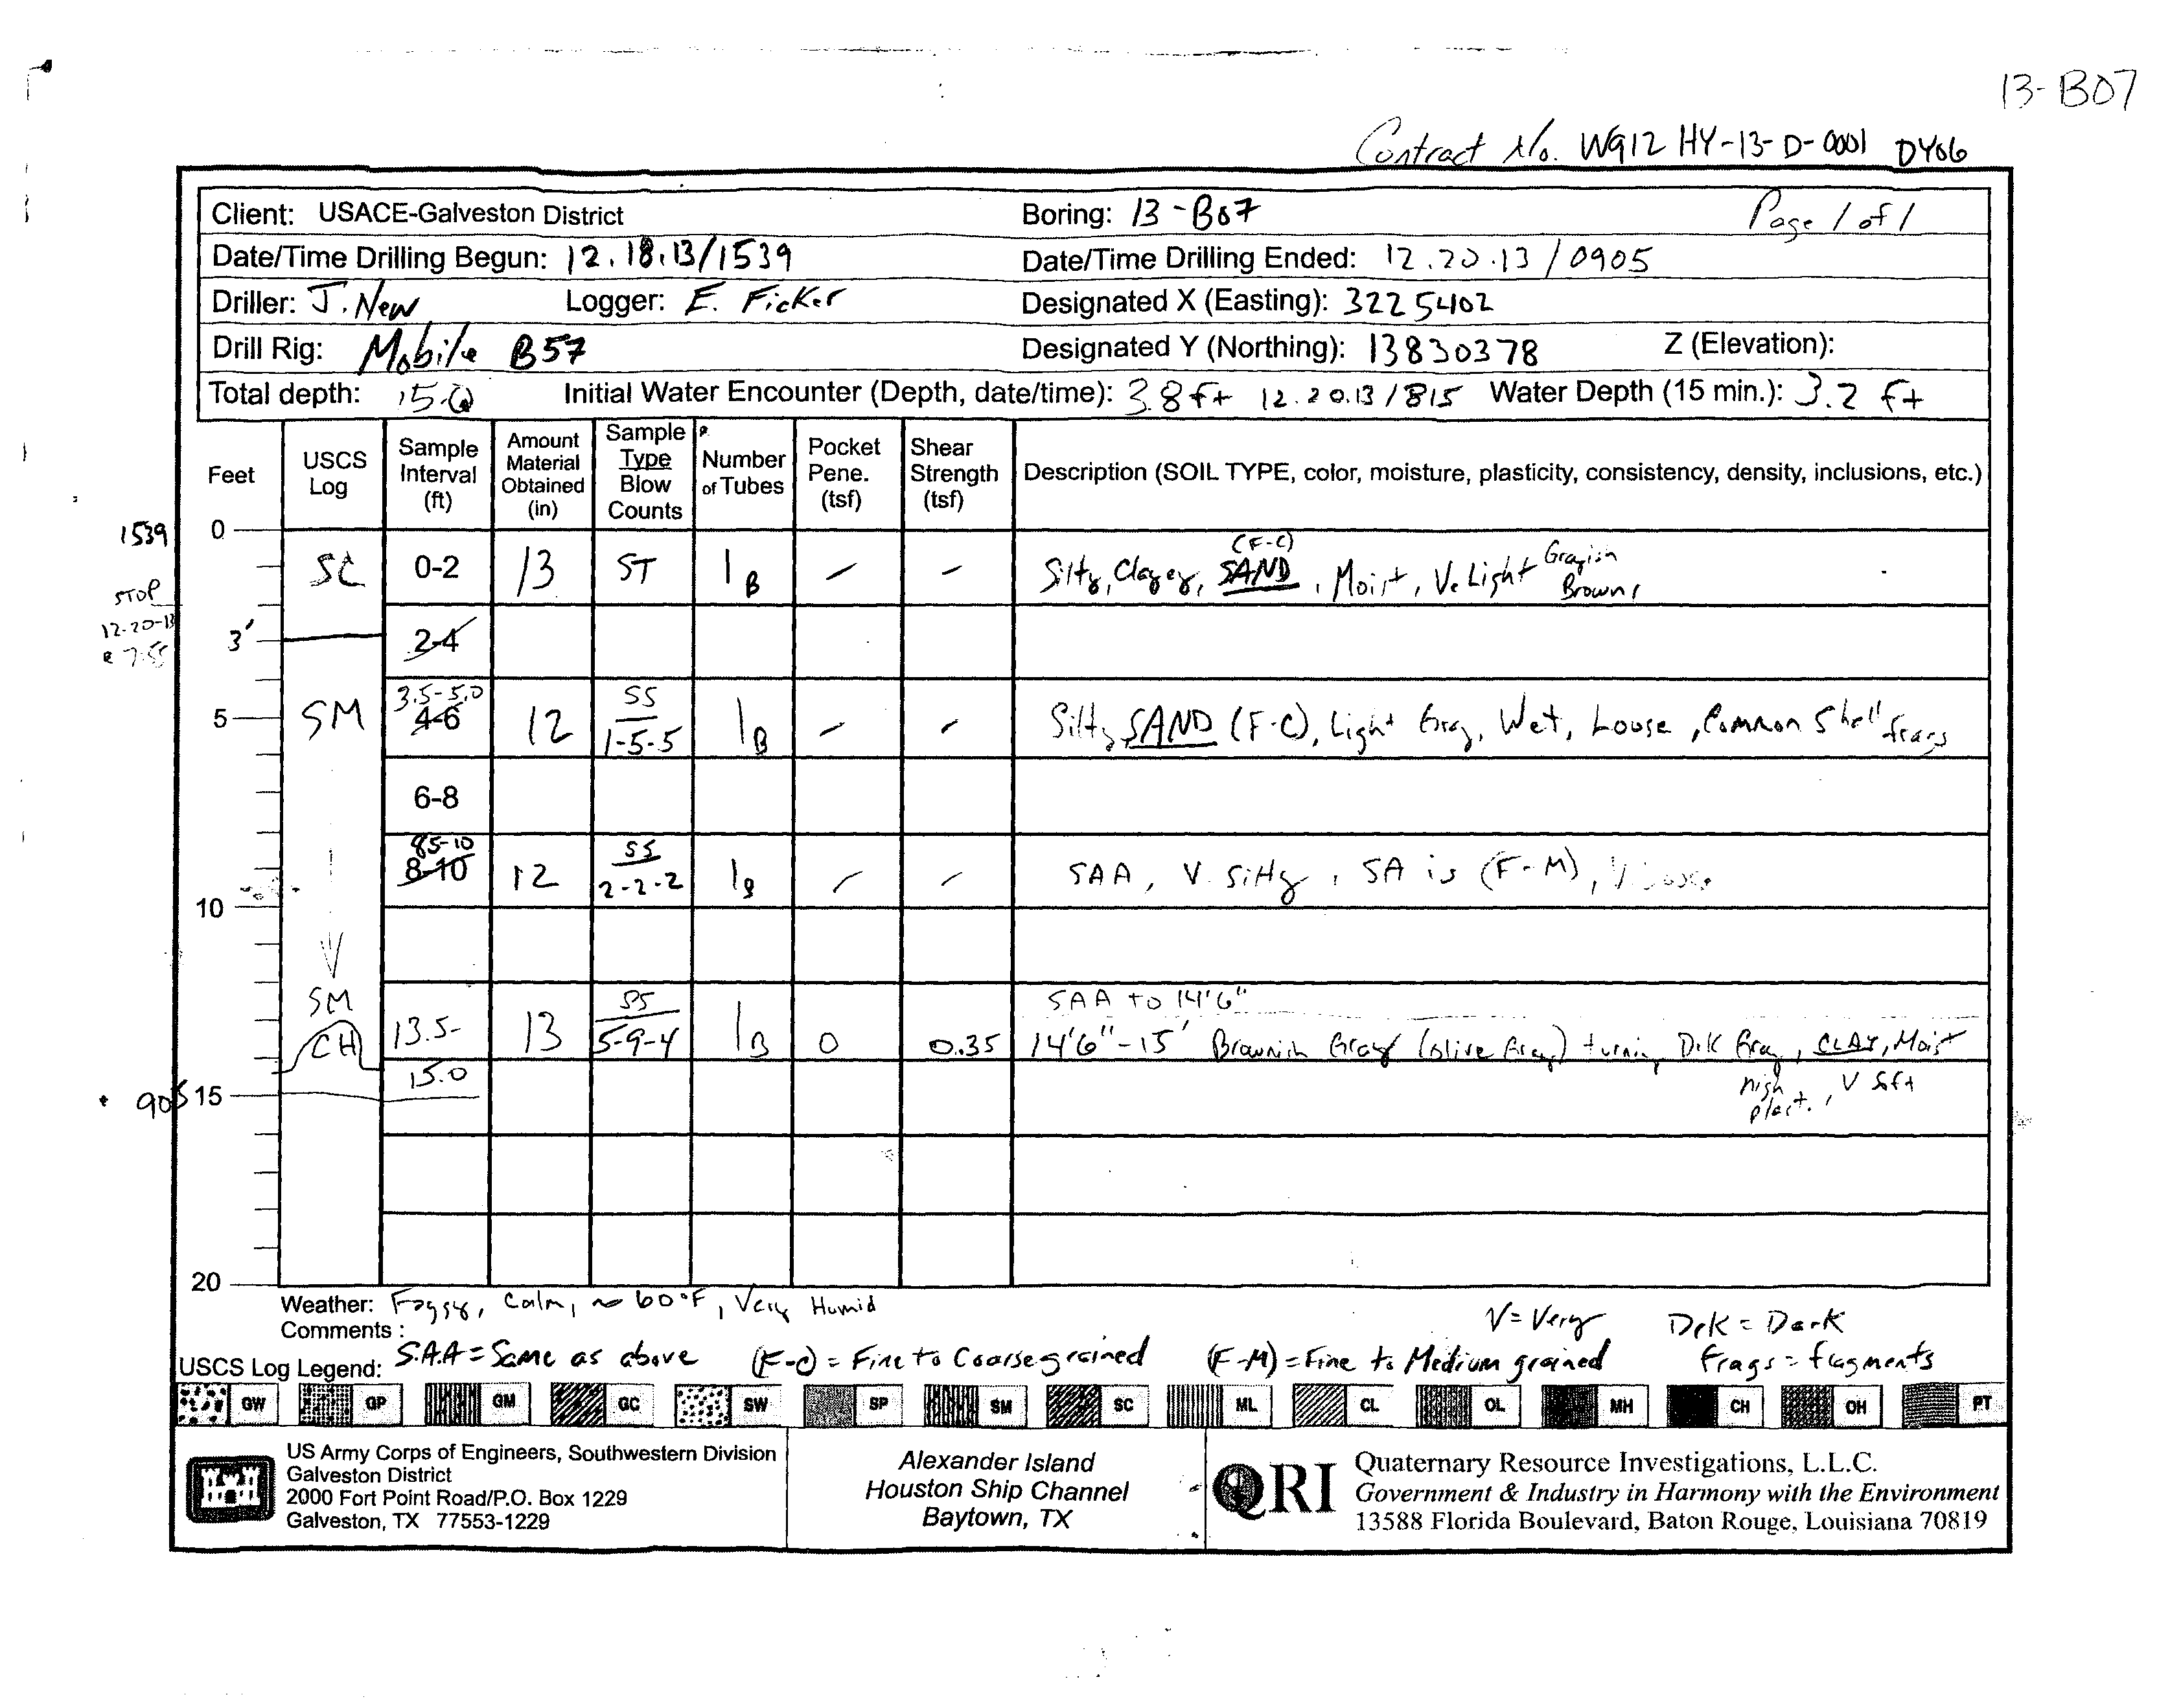 13-B07
Contract No. W912 HY-13-D-0001 DY06
Client: USACE-Galveston District Boring: 13-B07 Page 1 of 1
Date/Time Drilling Begun: 12.18.13/1539 Date/Time Drilling Ended: 12.20.13/0905
Driller: J. New Logger: E. Ficker Designated X (Easting): 3225402
Drill Rig: Mobile B57 Designated Y (Northing): 13830378 Z (Elevation):
Total depth: 15.0 Initial Water Encounter (Depth, date/time): 3.8 ft 12.20.13/815 Water Depth (15 min.): 3.2 ft
Feet USCS Log Sample Interval (ft) Amount Material Obtained (in) Sample Type Blow Counts Number of Tubes Pocket Pene. (tsf) Shear Strength (tsf) Description (SOIL TYPE, color, moisture, plasticity, consistency, density, inclusions, etc.)
1539 0
SC 0-2 13 ST 1B - - Silty, Clayey, SAND (F-C), Moist, V. Light Grayish Brown,
STOP
12-20-13
@ 7:55
3' 2-4
3.5-5.0
5 SM 4-6 12 SS 1-5-5 1B - - Silty SAND (F-C), Light Gray, Wet, Loose, Common Shell frags
6-8
8.5-10
8-10 12 SS 2-2-2 1B - - SAA, V. Silty, SA is (F-M), V. Loose
10
SM SAA to 14'6"
CH 13.5-15.0 13 SS 5-9-4 1B 0 0.35 14'6"-15' Brownish Gray (olive Gray) turning Drk Gray, CLAY, Moist
high plast., V Soft
905 15
20
Weather: Foggy, Calm, ~60°F, Very Humid
Comments: V=Very Drk = Dark
S.A.A = Same as above (F-C) = Fine to Coarse grained (F-M) = Fine to Medium grained Frags = fragments
USCS Log Legend:
GW GP GM GC SW SP SM SC ML CL OL MH CH OH PT
US Army Corps of Engineers, Southwestern Division
Galveston District
2000 Fort Point Road/P.O. Box 1229
Galveston, TX 77553-1229
Alexander Island
Houston Ship Channel
Baytown, TX
QRI
Quaternary Resource Investigations, L.L.C.
Government & Industry in Harmony with the Environment
13588 Florida Boulevard, Baton Rouge, Louisiana 70819